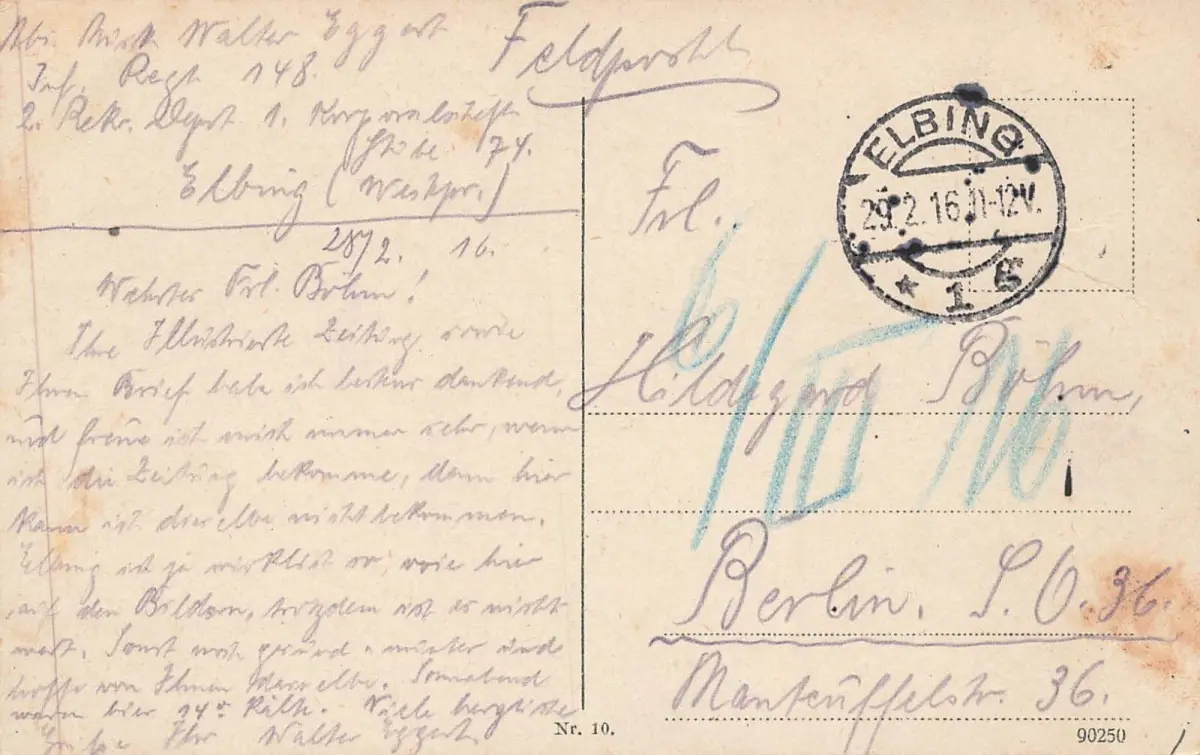 Walter Eggert
Inf. Regt. 148.
2. Rekr. Depot 1. Korporalschaft
Stube 74.
Elbing (Westpr.)
28/2. 16.
Wehrter Frl. Böhm!
Ihre Illustrierte Zeitung, sowie
Ihren Brief habe ich bestens dankend,
und freue ich mich immer sehr, wenn
ich die Zeitung bekomme, denn hier
kann ich dieselbe nicht bekommen.
Elbing ist ja wirklich so, wie hier
auf den Bildern, trotzdem ist es nicht
Sonst noch gesund u. munter und
hoffe von Ihnen dasselbe. Sonnabend
waren hier 14° Kälte. Viele herzliche
Grüße Ihr Walter Eggert.
Feldpost
ELBING
29.2.16.11-12V.
* 1 g
Frl.
Hildegard Böhm,
Berlin. S.O. 36.
Manteuffelstr. 36.
Nr. 10.
90250